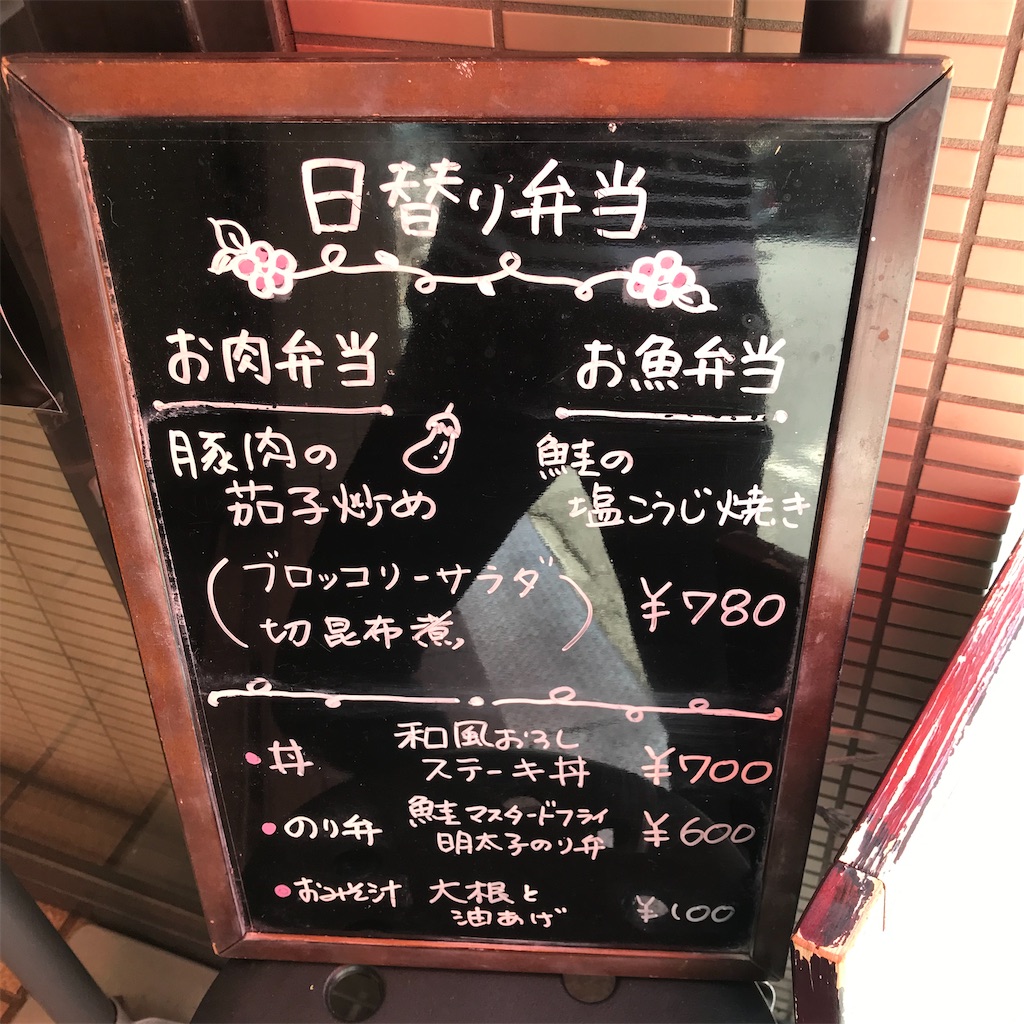 日替り弁当
お肉弁当
豚肉の
茄子炒め
お魚弁当
鮭の
塩こうじ焼き
(ブロッコリーサラダ
切昆布煮)
¥780
・丼 和風おろし
ステーキ丼 ¥700
・のり弁 鮭マスタードフライ
明太子のり弁 ¥600
・おみそ汁 大根と
油あげ ¥100